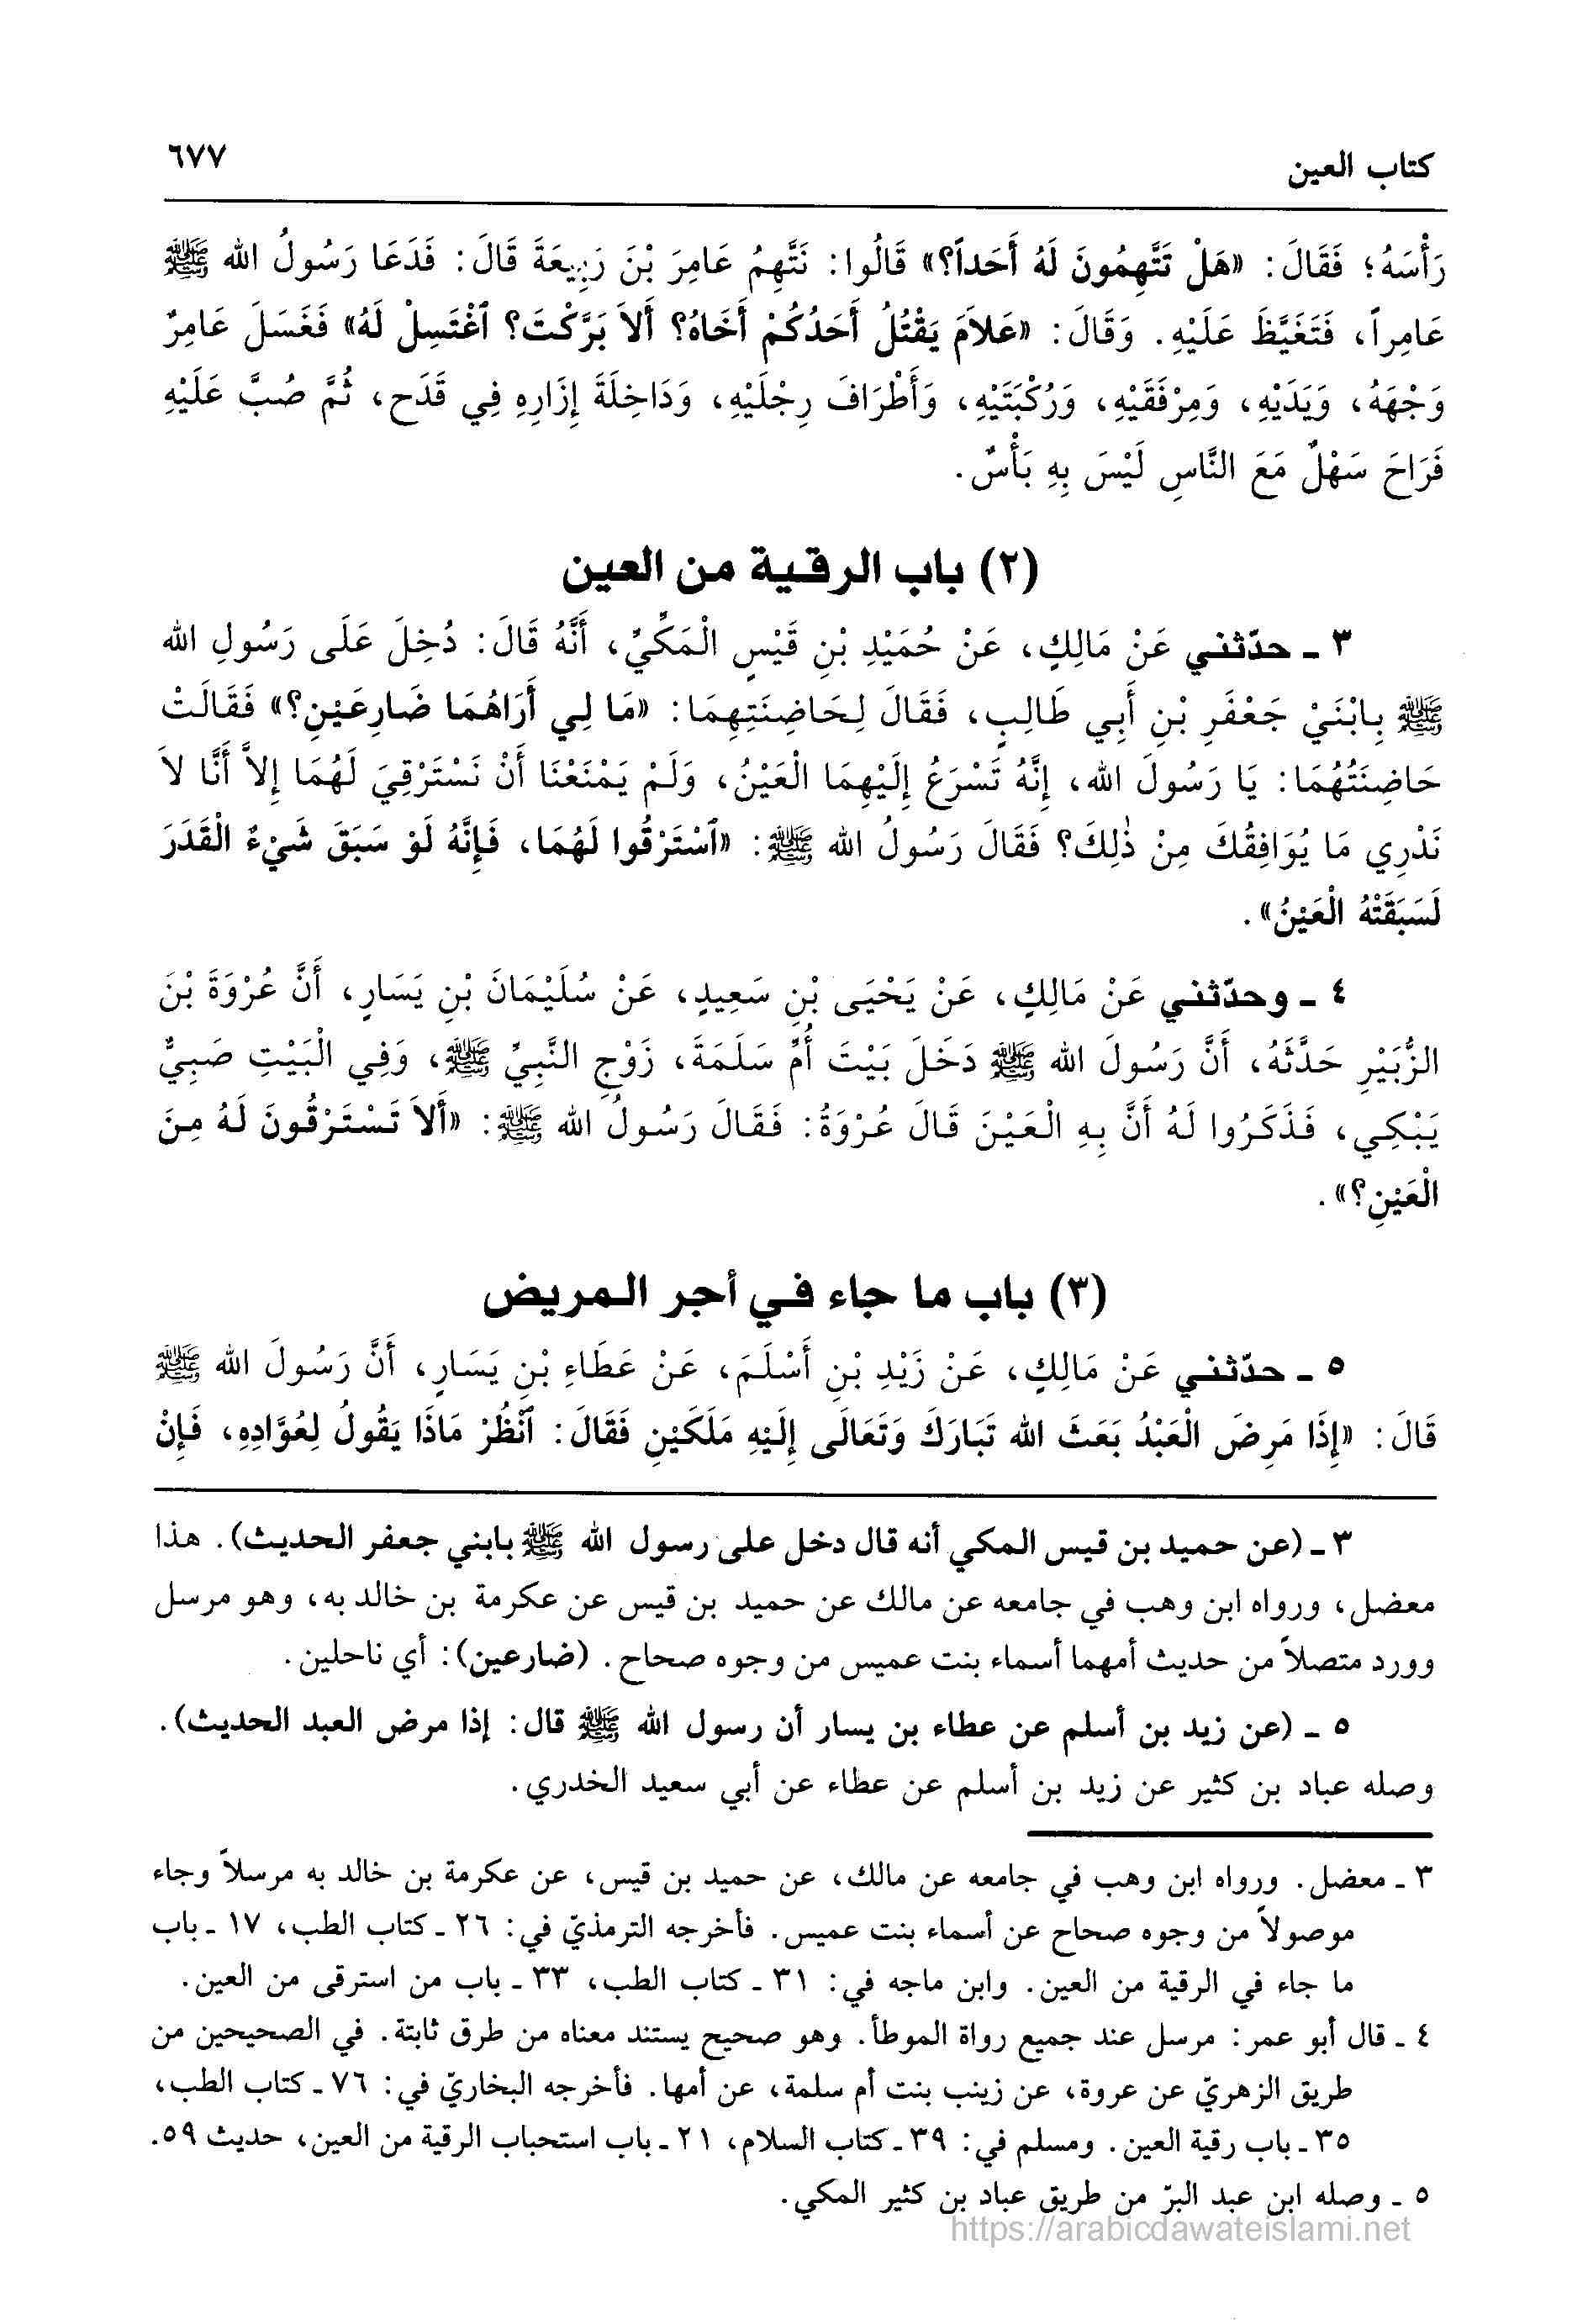 كتاب العين ٦٧٧
رَأْسَهُ؛ فَقَالَ: «هَلْ تَتَّهِمُونَ لَهُ أَحَداً؟» قَالُوا: نَتَّهِمُ عَامِرَ بْنَ رَبِيعَةَ قَالَ: فَدَعَا رَسُولُ الله ﷺ
عَامِراً، فَتَغَيَّظَ عَلَيْهِ. وَقَالَ: «عَلاَمَ يَقْتُلُ أَحَدُكُمْ أَخَاهُ؟ أَلاَ بَرَّكْتَ؟ ٱغْتَسِلْ لَهُ» فَغَسَلَ عَامِرٌ
وَجْهَهُ، وَيَدَيْهِ، وَمِرْفَقَيْهِ، وَرُكْبَتَيْهِ، وَأَطْرَافَ رِجْلَيْهِ، وَدَاخِلَةَ إِزَارِهِ فِي قَدَحٍ، ثُمَّ صُبَّ عَلَيْهِ
فَرَاحَ سَهْلٌ مَعَ النَّاسِ لَيْسَ بِهِ بَأْسٌ.
(٢) باب الرقية من العين
٣ ـ حدّثني عَنْ مَالِكٍ، عَنْ حُمَيْدِ بْنِ قَيْسٍ الْمَكِّيِّ، أَنَّهُ قَالَ: دُخِلَ عَلَى رَسُولِ الله
ﷺ بِابْنَيْ جَعْفَرِ بْنِ أَبِي طَالِبٍ، فَقَالَ لِحَاضِنَتِهِمَا: «مَا لِي أَرَاهُمَا ضَارِعَيْنِ؟» فَقَالَتْ
حَاضِنَتُهُمَا: يَا رَسُولَ الله، إِنَّهُ تَسْرَعُ إِلَيْهِمَا الْعَيْنُ، وَلَمْ يَمْنَعْنَا أَنْ نَسْتَرْقِيَ لَهُمَا إِلاَّ أَنَّا لاَ
نَدْرِي مَا يُوَافِقُكَ مِنْ ذٰلِكَ؟ فَقَالَ رَسُولُ الله ﷺ: «ٱسْتَرْقُوا لَهُمَا، فَإِنَّهُ لَوْ سَبَقَ شَيْءٌ الْقَدَرَ
لَسَبَقَتْهُ الْعَيْنُ».
٤ ـ وحدّثني عَنْ مَالِكٍ، عَنْ يَحْيَى بْنِ سَعِيدٍ، عَنْ سُلَيْمَانَ بْنِ يَسَارٍ، أَنَّ عُرْوَةَ بْنَ
الزُّبَيْرِ حَدَّثَهُ، أَنَّ رَسُولَ الله ﷺ دَخَلَ بَيْتَ أُمِّ سَلَمَةَ، زَوْجِ النَّبِيِّ ﷺ، وَفِي الْبَيْتِ صَبِيٌّ
يَبْكِي، فَذَكَرُوا لَهُ أَنَّ بِهِ الْعَيْنَ قَالَ عُرْوَةُ: فَقَالَ رَسُولُ الله ﷺ: «أَلاَ تَسْتَرْقُونَ لَهُ مِنَ
الْعَيْنِ؟».
(٣) باب ما جاء في أجر المريض
٥ ـ حدّثني عَنْ مَالِكٍ، عَنْ زَيْدِ بْنِ أَسْلَمَ، عَنْ عَطَاءِ بْنِ يَسَارٍ، أَنَّ رَسُولَ الله ﷺ
قَالَ: «إِذَا مَرِضَ الْعَبْدُ بَعَثَ الله تَبَارَكَ وَتَعَالَى إِلَيْهِ مَلَكَيْنِ فَقَالَ: ٱنْظُرْ مَاذَا يَقُولُ لِعُوَّادِهِ، فَإِنْ
٣ ـ (عن حميد بن قيس المكي أنه قال دخل على رسول الله ﷺ بابني جعفر الحديث). هذا
معضل، ورواه ابن وهب في جامعه عن مالك عن حميد بن قيس عن عكرمة بن خالد به، وهو مرسل
وورد متصلاً من حديث أمهما أسماء بنت عميس من وجوه صحاح. (ضارعين): أي ناحلين.
٥ ـ (عن زيد بن أسلم عن عطاء بن يسار أن رسول الله ﷺ قال: إذا مرض العبد الحديث).
وصله عباد بن كثير عن زيد بن أسلم عن عطاء عن أبي سعيد الخدري.
٣ ـ معضل. ورواه ابن وهب في جامعه عن مالك، عن حميد بن قيس، عن عكرمة بن خالد به مرسلاً وجاء
موصولاً من وجوه صحاح عن أسماء بنت عميس. فأخرجه الترمذيّ في: ٢٦ ـ كتاب الطب، ١٧ ـ باب
ما جاء في الرقية من العين. وابن ماجه في: ٣١ ـ كتاب الطب، ٣٣ ـ باب من استرقى من العين.
٤ ـ قال أبو عمر: مرسل عند جميع رواة الموطأ. وهو صحيح يستند معناه من طرق ثابتة. في الصحيحين من
طريق الزهريّ عن عروة، عن زينب بنت أم سلمة، عن أمها. فأخرجه البخاريّ في: ٧٦ ـ كتاب الطب،
٣٥ ـ باب رقية العين. ومسلم في: ٣٩ ـ كتاب السلام، ٢١ ـ باب استحباب الرقية من العين، حديث ٥٩.
٥ ـ وصله ابن عبد البرّ من طريق عباد بن كثير المكي.
https://arabicdawateislami.net